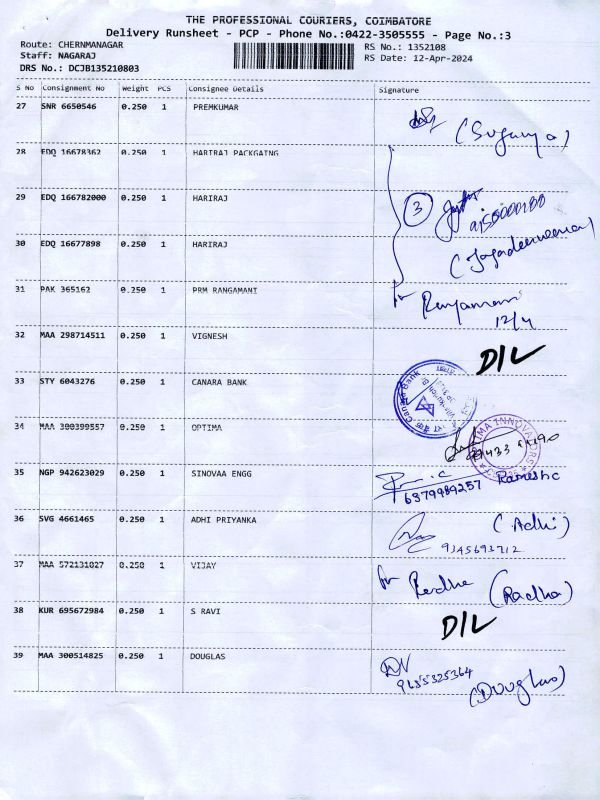 THE PROFESSIONAL COURIERS, COIMBATORE
Delivery Runsheet - PCP - Phone No.:0422-3505555 - Page No.:3
Route: CHERNMANAGAR
Staff: NAGARAJ
DRS No.: DCJB135210803
RS No.: 1352108
RS Date: 12-Apr-2024
S No Consignment No Weight PCS Consignee Details Signature
27 SNR 6650546 0.250 1 PREMKUMAR
(Suganya)
28 EDQ 16678362 0.250 1 HARIRAJ PACKGAING
29 EDQ 166782000 0.250 1 HARIRAJ
3
30 EDQ 16677898 0.250 1 HARIRAJ
31 PAK 365162 0.250 1 PRM RANGAMANI
12/4
32 MAA 298714511 0.250 1 VIGNESH
D/L
33 STY 6043276 0.250 1 CANARA BANK
Canara Bank
34 MAA 300399557 0.250 1 OPTIMA
35 NGP 942623029 0.250 1 SINOVAA ENGG
Ramesh C
6379989257
36 SVG 4661465 0.250 1 ADHI PRIYANKA
(Adhi)
9345693712
37 MAA 572131027 0.250 1 VIJAY
for Radha (Radha)
38 KUR 695672984 0.250 1 S RAVI
D/L
39 MAA 300514825 0.250 1 DOUGLAS
9655325364
(Douglas)